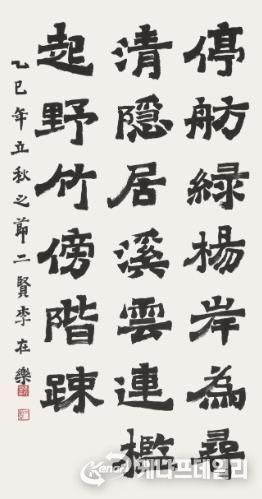 停舫綠楊岸為尋
清隱居溪雲連檻
起野竹傍階踈
乙巳年立秋之節二賢李在樂
케나프데일리